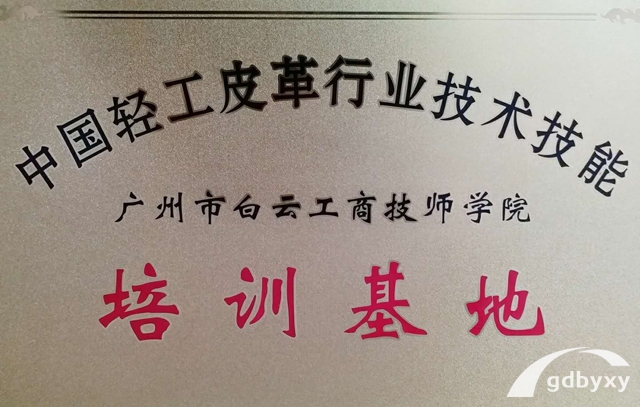 中国轻工皮革行业技术技能
广州市白云工商技师学院
培训基地
gdbyxy